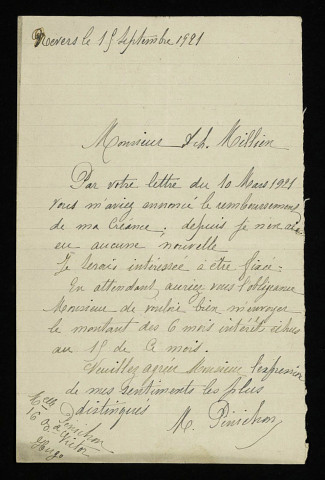 Nevers le 15 Septembre 1921
Monsieur Ach. Millien
Par votre lettre du 10 Mars 1921
vous m'aviez annoncé le remboursement
de ma créance; depuis je n'en ai
eu aucune nouvelle
Je serais intéressée à être fixée.
En attendant, auriez vous l'obligeance
Monsieur de vouloir bien m'envoyer
le montant des 6 mois intérêts échus
au 15 de ce mois.
Veuillez agréer Monsieur l'expression
de mes sentiments les plus
distingués
M. Pinichon
Pinichon
16
Victor
Hugo